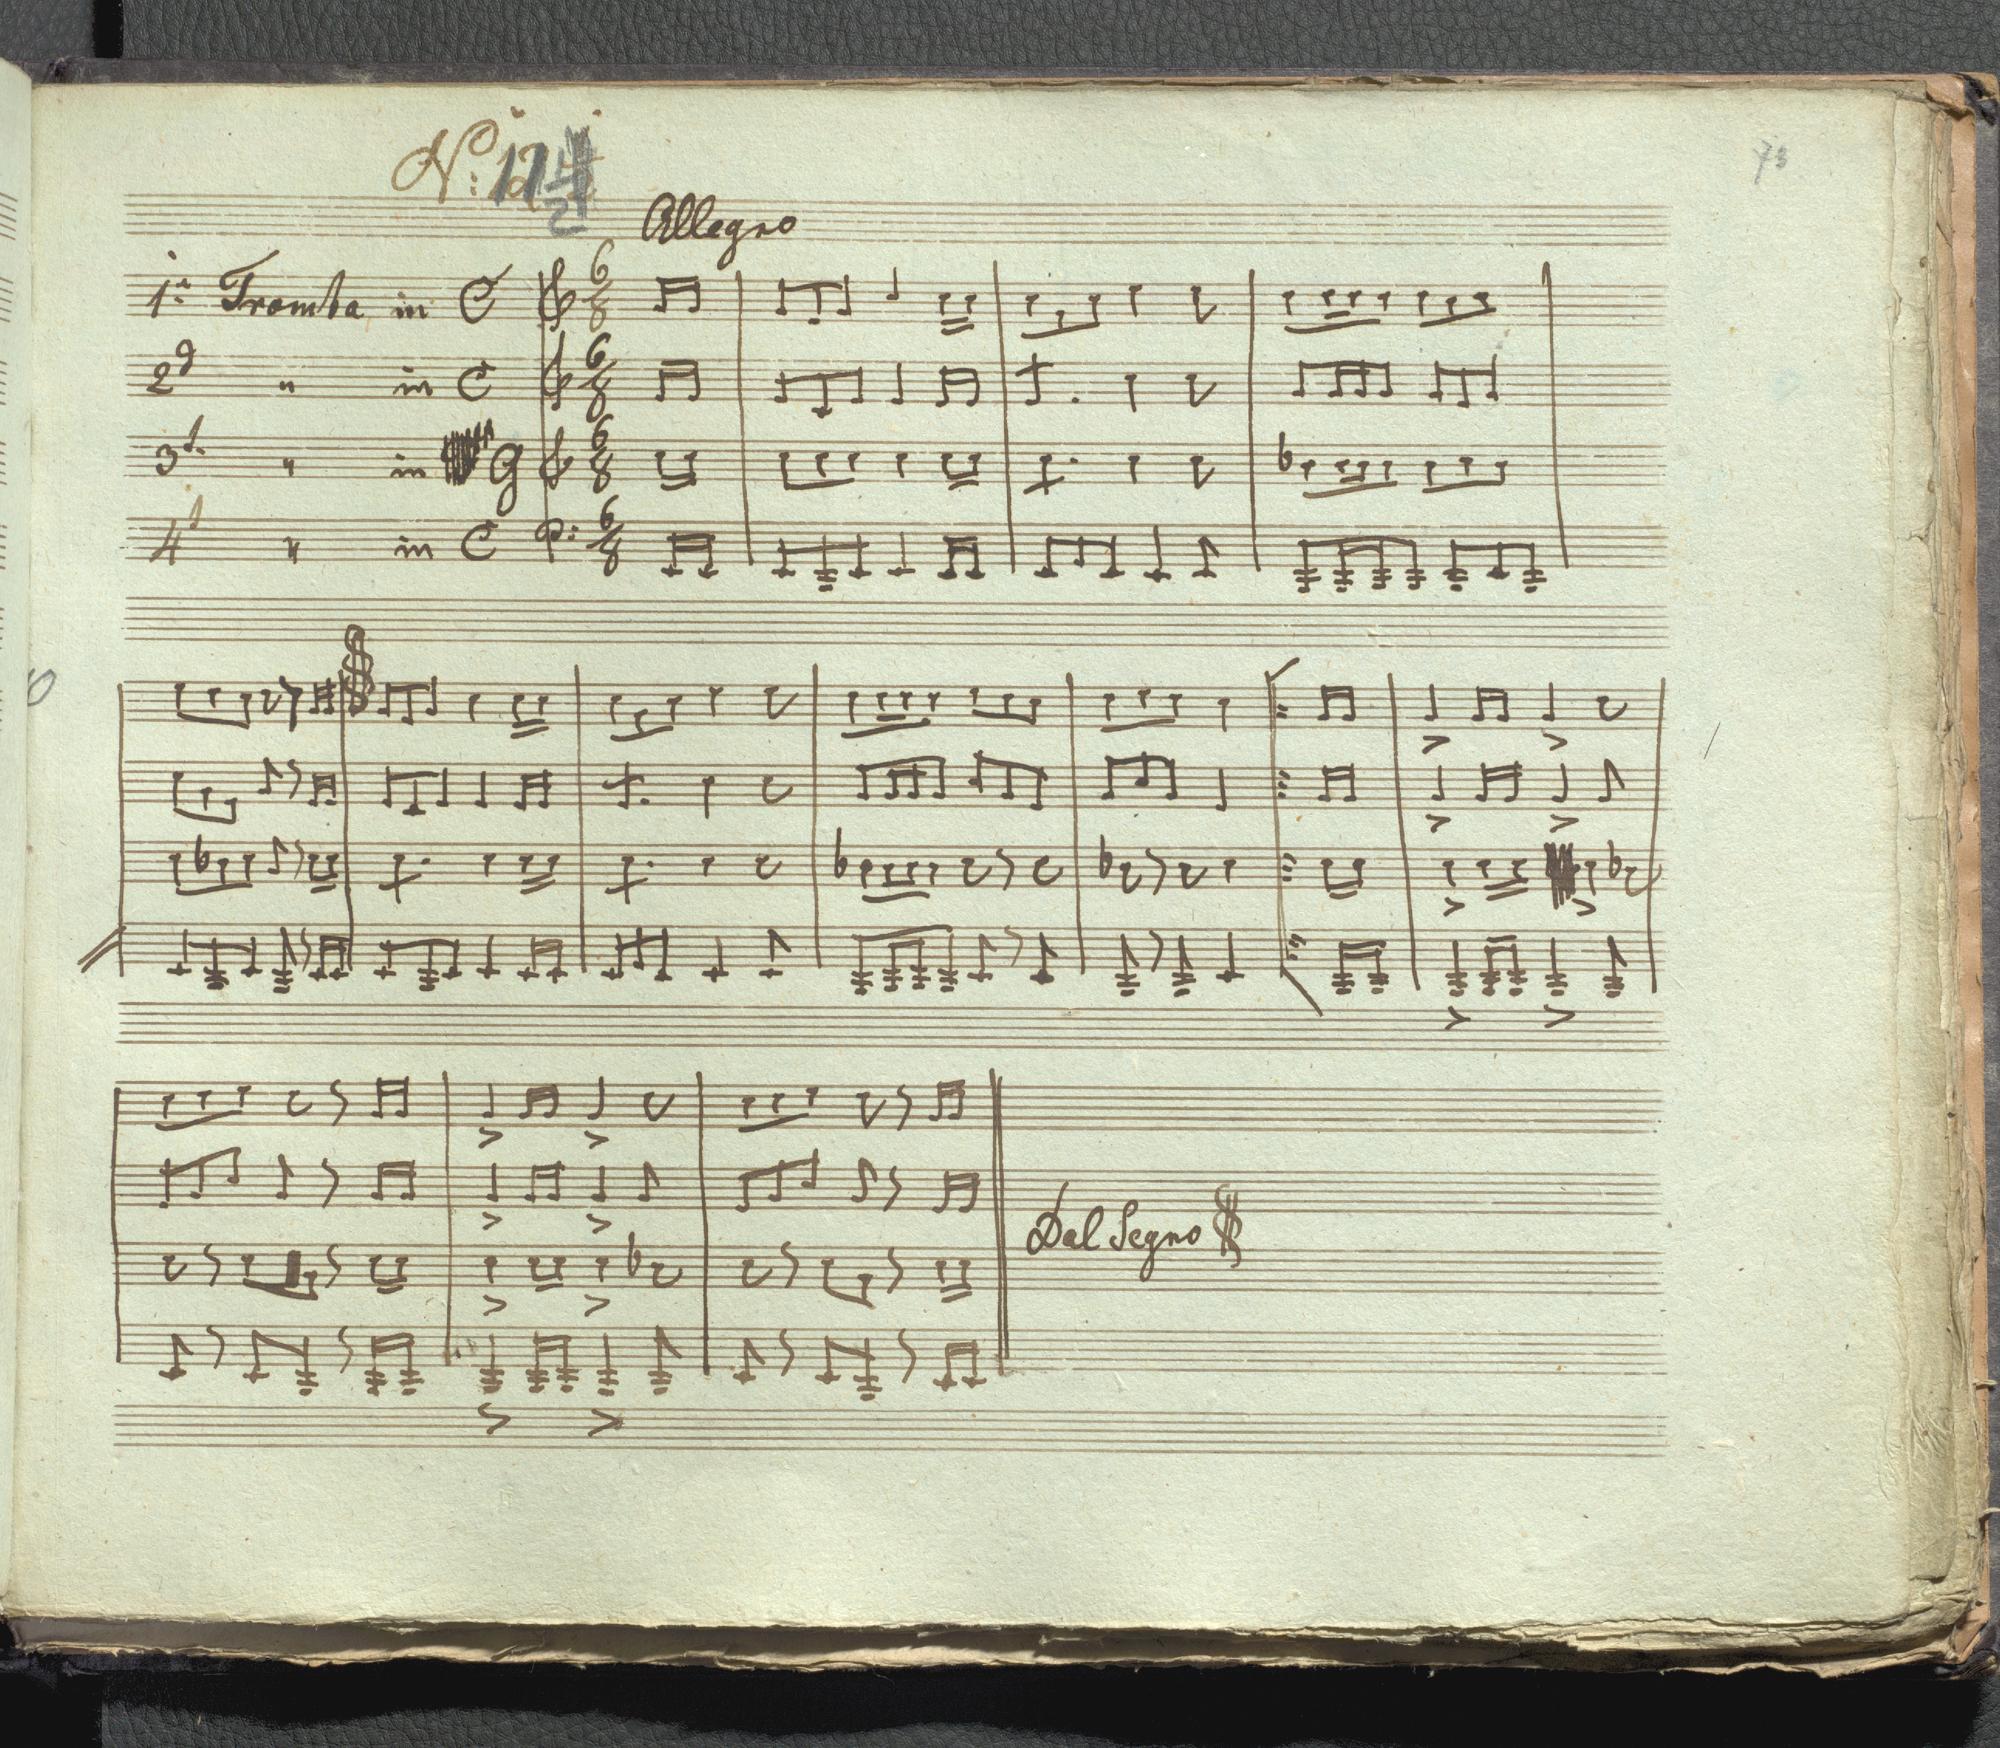 73
Allegro
1ª Tromba in C 6/8
2ª " in C 6/8
3ª " in G 6/8
4ª " in C 6/8
Dal Segno